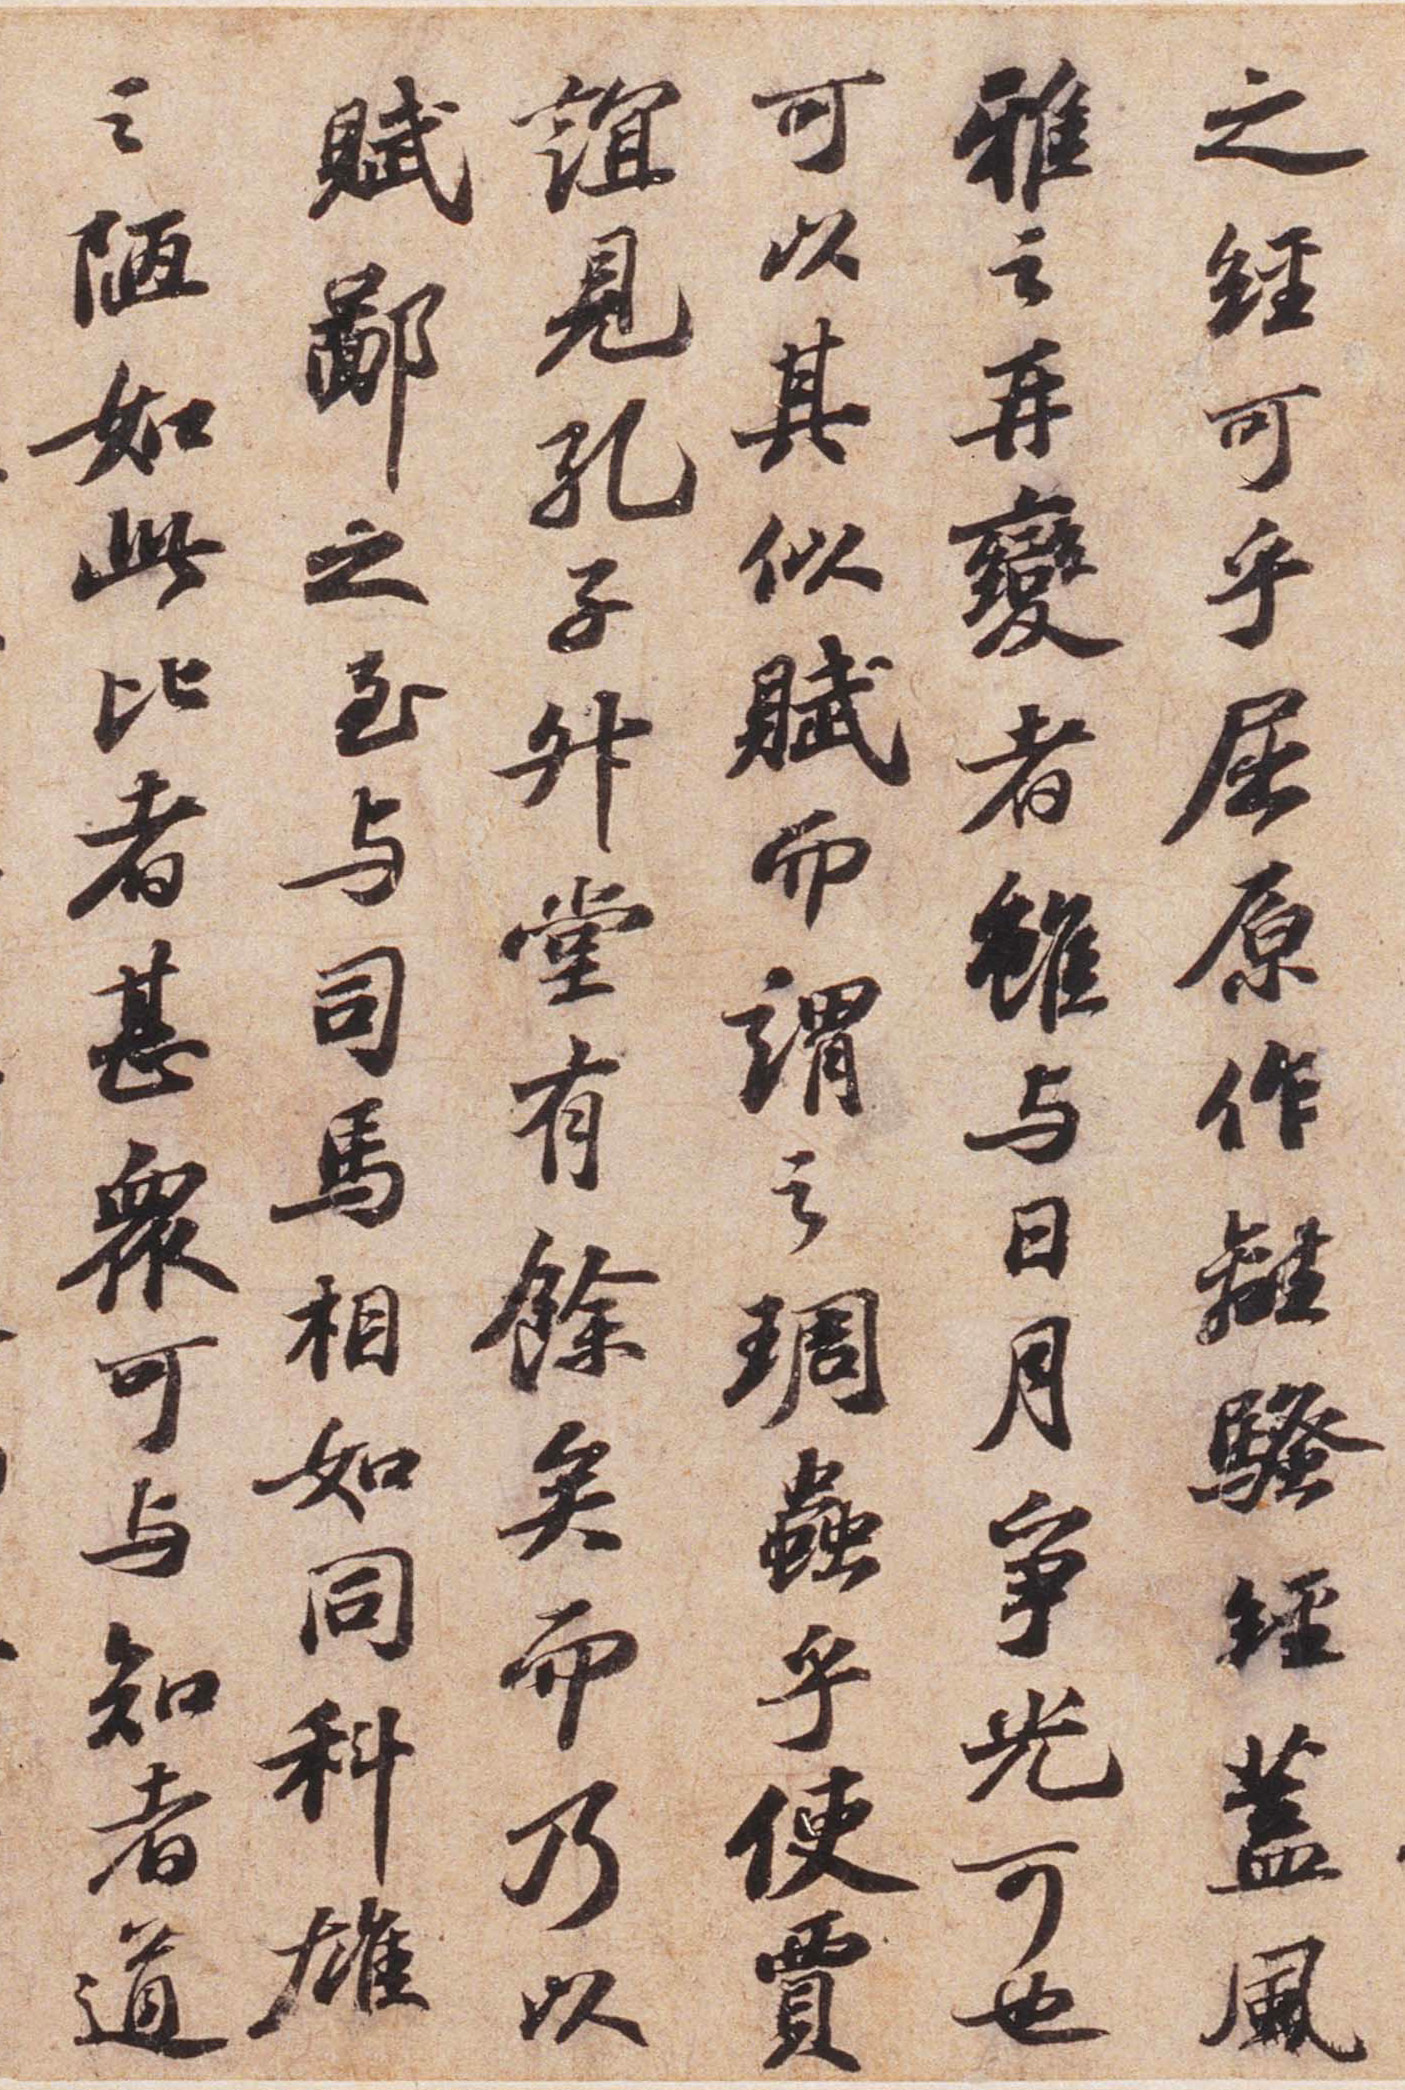 之經可乎屈原作離騷經蓋風
雅之再變者雖与日月爭光可也
可以其似賦而謂之琱蟲乎使賈
誼見孔子升堂有餘矣而乃以
賦鄙之至与司馬相如同科雄
之陋如此比者甚眾可与知者道